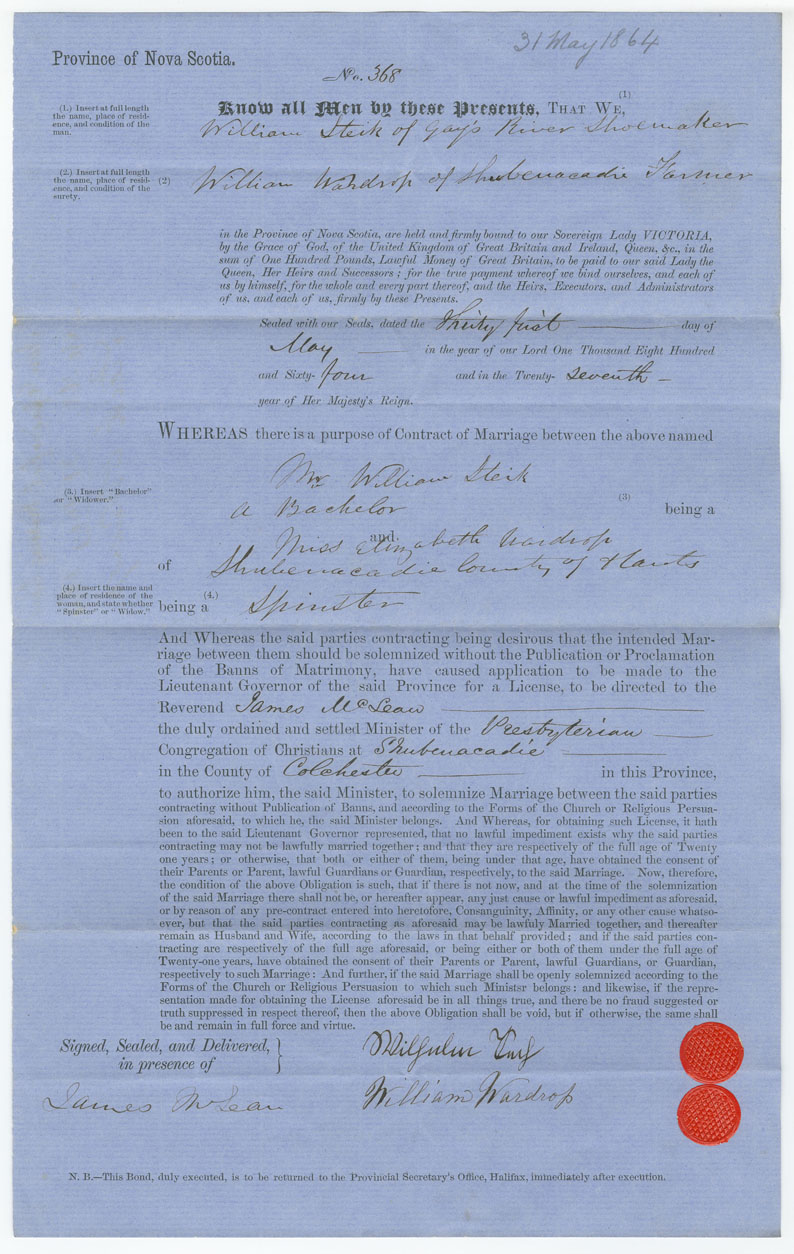 31 May 1864
Province of Nova Scotia.
No. 368
(1.) Insert at full length
the name, place of resid-
ence, and condition of the
man.
(1)
Know all Men by these Presents, THAT WE,
William Steik of Gays River Shoemaker
(2.) Insert at full length
the name, place of resid-
ence, and condition of the
surety.
(2)
William Wardrop of Shubenacadie Farmer
in the Province of Nova Scotia, are held and firmly bound to our Sovereign Lady VICTORIA,
by the Grace of God, of the United Kingdom of Great Britain and Ireland, Queen, &c., in the
sum of One Hundred Pounds, Lawful Money of Great Britain, to be paid to our said Lady the
Queen, Her Heirs and Successors ; for the true payment whereof we bind ourselves, and each of
us by himself, for the whole and every part thereof, and the Heirs, Executors, and Administrators
of us, and each of us, firmly by these Presents.
Sealed with our Seals, dated the Thirty first day of
May in the year of our Lord One Thousand Eight Hundred
and Sixty- four and in the Twenty- seventh
year of Her Majesty's Reign.
WHEREAS there is a purpose of Contract of Marriage between the above named
Mr William Steik
(3.) Insert "Bachelor"
or "Widower."
a Bachelor (3) being a
and
Miss Elizabeth Wardrop
of Shubenacadie County of Hants
(4.) Insert the name and
place of residence of the
woman, and state whether
"Spinster" or "Widow."
(4.)
being a Spinster
And Whereas the said parties contracting being desirous that the intended Mar-
riage between them should be solemnized without the Publication or Proclamation
of the Banns of Matrimony, have caused application to be made to the
Lieutenant Governor of the said Province for a License, to be directed to the
Reverend James McLean
the duly ordained and settled Minister of the Presbyterian
Congregation of Christians at Shubenacadie
in the County of Colchester in this Province,
to authorize him, the said Minister, to solemnize Marriage between the said parties
contracting without Publication of Banns, and according to the Forms of the Church or Religious Persua-
sion aforesaid, to which he, the said Minister belongs. And Whereas, for obtaining such License, it hath
been to the said Lieutenant Governor represented, that no lawful impediment exists why the said parties
contracting may not be lawfully married together ; and that they are respectively of the full age of Twenty
one years ; or otherwise, that both or either of them, being under that age, have obtained the consent of
their Parents or Parent, lawful Guardians or Guardian, respectively, to the said Marriage. Now, therefore,
the condition of the above Obligation is such, that if there is not now, and at the time of the solemnization
of the said Marriage there shall not be, or hereafter appear, any just cause or lawful impediment as aforesaid,
or by reason of any pre-contract entered into heretofore, Consanguinity, Affinity, or any other cause whatso-
ever, but that the said parties contracting as aforesaid may be lawfuly Married together, and thereafter
remain as Husband and Wife, according to the laws in that behalf provided ; and if the said parties con-
tracting are respectively of the full age aforesaid, or being either or both of them under the full age of
Twenty-one years, have obtained the consent of their Parents or Parent, lawful Guardians, or Guardian,
respectively to such Marriage : And further, if the said Marriage shall be openly solemnized according to the
Forms of the Church or Religious Persuasion to which such Ministsr belongs : and likewise, if the repre-
sentation made for obtaining the License aforesaid be in all things true, and there be no fraud suggested or
truth suppressed in respect thereof, then the above Obligation shall be void, but if otherwise, the same shall
be and remain in full force and virtue.
Signed, Sealed, and Delivered,
in presence of
Wilhelm
James McLean
William Wardrop
N. B.—This Bond, duly executed, is to be returned to the Provincial Secretary's Office, Halifax, immediately after execution.